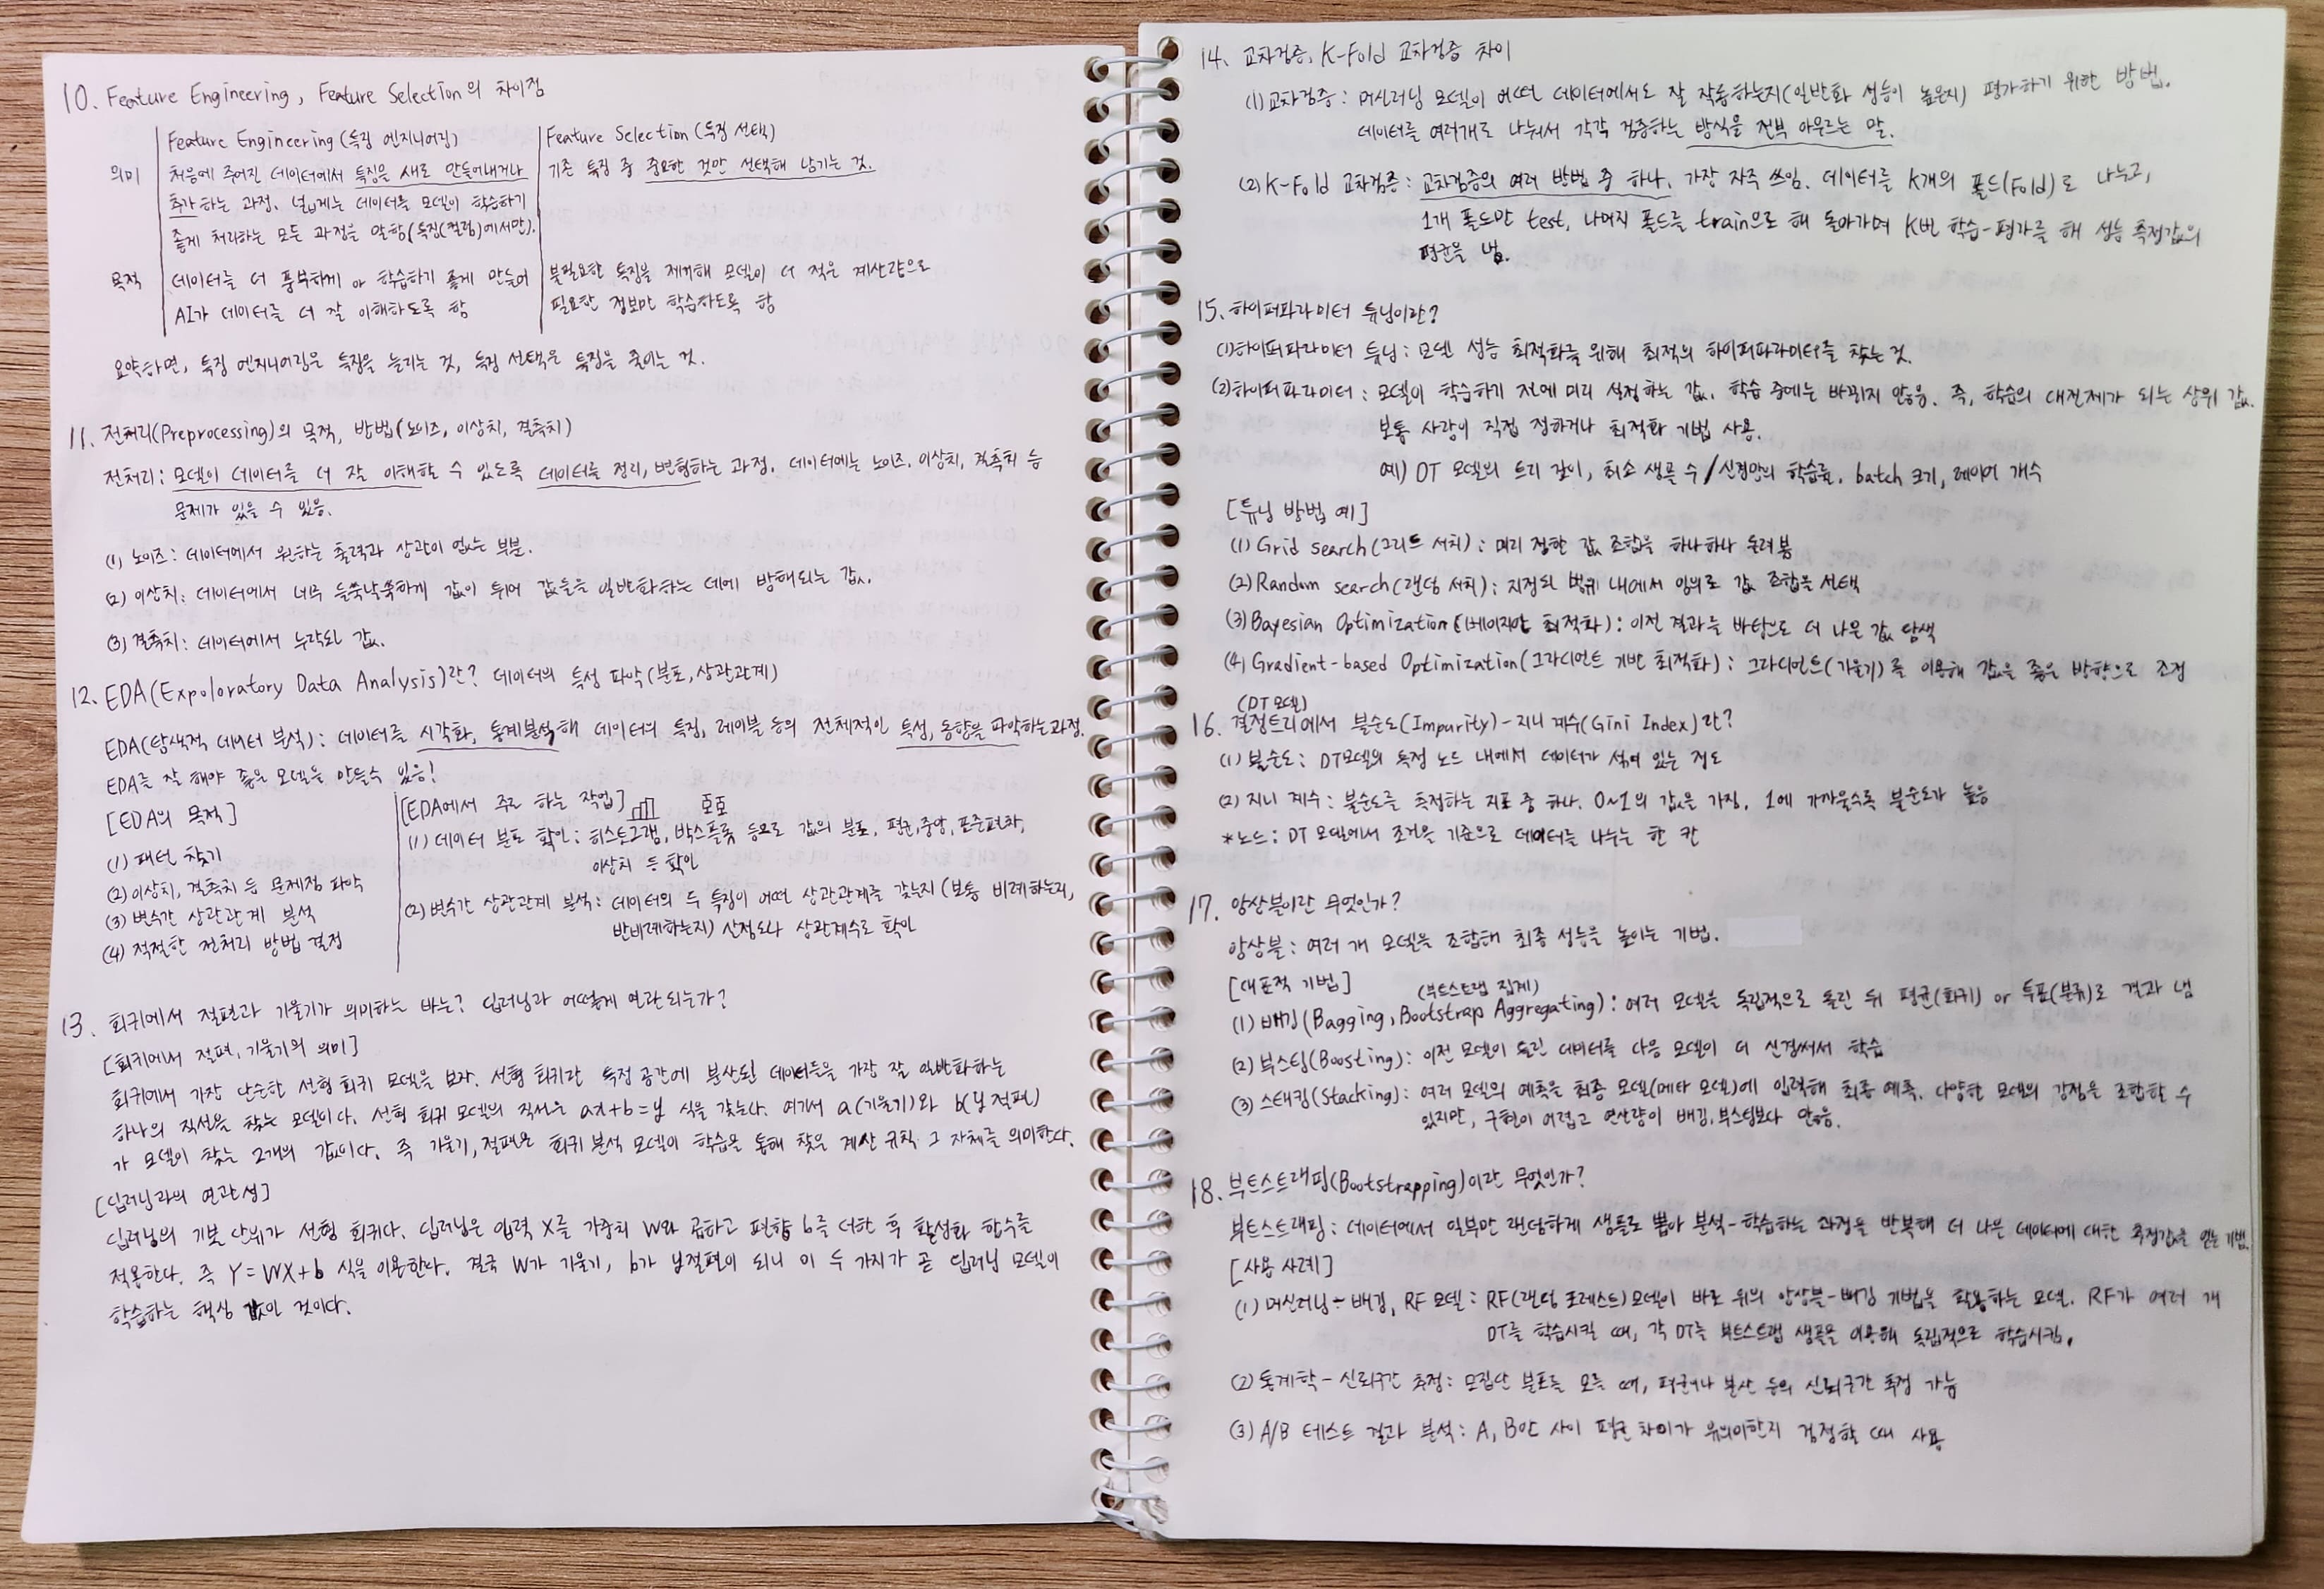 10. Feature Engineering, Feature Selection의 차이점
Feature Engineering (특징 엔지니어링) Feature Selection (특징 선택)
의미 처음에 주어진 데이터에서 특징을 새로 만들어내거나 기존 특징 중 중요한 것만 선택해 남기는 것.
추가하는 과정. 넓게는 데이터를 모델이 학습하기
좋게 처리하는 모든 과정을 말함(특징(컬럼)에서만).
목적 데이터를 더 풍부하게 or 학습하기 좋게 만들어 불필요한 특징을 제거해 모델이 더 적은 계산량으로
AI가 데이터를 더 잘 이해하도록 함 필요한 정보만 학습하도록 함
요약하면, 특징 엔지니어링은 특징을 늘리는 것, 특징 선택은 특징을 줄이는 것.
11. 전처리(Preprocessing)의 목적, 방법(노이즈, 이상치, 결측치)
전처리: 모델이 데이터를 더 잘 이해할 수 있도록 데이터를 정리, 변형하는 과정. 데이터에는 노이즈, 이상치, 결측치 등
문제가 있을 수 있음.
(1) 노이즈: 데이터에서 원하는 출력과 상관이 없는 부분.
(2) 이상치: 데이터에서 너무 들쑥날쑥하게 값이 튀어 값들을 일반화하는 데에 방해되는 값.
(3) 결측치: 데이터에서 누락된 값.
12. EDA(Expoloratory Data Analysis)란? 데이터의 특성 파악(분포, 상관관계)
EDA(탐색적 데이터 분석): 데이터를 시각화, 통계분석해 데이터의 특징, 레이블 등의 전체적인 특성, 동향을 파악하는 과정.
EDA를 잘 해야 좋은 모델을 만들수 있음!
[EDA의 목적]
(1) 패턴 찾기
(2) 이상치, 결측치 등 문제점 파악
(3) 변수간 상관관계 분석
(4) 적절한 전처리 방법 결정
[EDA에서 주로 하는 작업]
(1) 데이터 분포 확인: 히스토그램, 박스플롯 등으로 값의 분포, 평균, 중앙, 표준편차,
이상치 등 확인
(2) 변수간 상관관계 분석: 데이터의 두 특징이 어떤 상관관계를 갖는지 (보통 비례하는지,
반비례하는지) 산점도나 상관계수로 확인
13. 회귀에서 절편과 기울기가 의미하는 바는? 딥러닝과 어떻게 연관되는가?
[회귀에서 절편, 기울기의 의미]
회귀에서 가장 단순한 선형 회귀 모델을 보자. 선형 회귀란 특정 공간에 분산된 데이터들을 가장 잘 일반화하는
하나의 직선을 찾는 모델이다. 선형 회귀 모델의 직선은 ax+b=y 식을 갖는다. 여기서 a(기울기)와 b(y절편)
가 모델이 찾는 2개의 값이다. 즉 기울기, 절편은 회귀 분석 모델이 학습을 통해 찾은 계산 규칙 그 자체를 의미한다.
[딥러닝과의 연관성]
딥러닝의 기본 단위가 선형 회귀다. 딥러닝은 입력 X를 가중치 W와 곱하고 편향 b를 더한 후 활성화 함수를
적용한다. 즉 Y=WX+b 식을 이용한다. 결국 W가 기울기, b가 y절편이 되니 이 두 가지가 곧 딥러닝 모델이
학습하는 핵심 값인 것이다.
14. 교차검증, K-Fold 교차검증 차이
(1) 교차검증: 머신러닝 모델이 어떤 데이터에서도 잘 작동하는지(일반화 성능이 높은지) 평가하기 위한 방법.
데이터를 여러개로 나눠서 각각 검증하는 방식을 전부 아우르는 말.
(2) K-Fold 교차검증: 교차검증의 여러 방법 중 하나. 가장 자주 쓰임. 데이터를 K개의 폴드(Fold)로 나누고,
1개 폴드만 test, 나머지 폴드를 train으로 해 돌아가며 K번 학습-평가를 해 성능 측정값의
평균을 냄.
15. 하이퍼파라미터 튜닝이란?
(1) 하이퍼파라미터 튜닝: 모델 성능 최적화를 위해 최적의 하이퍼파라미터를 찾는 것.
(2) 하이퍼파라미터: 모델이 학습하기 전에 미리 설정하는 값. 학습 중에는 바뀌지 않음. 즉, 학습의 대전제가 되는 상위 값.
보통 사람이 직접 정하거나 최적화 기법 사용.
예) DT 모델의 트리 깊이, 최소 샘플 수 / 신경망의 학습률, batch 크기, 레이어 개수
[튜닝 방법 예]
(1) Grid search(그리드 서치): 미리 정한 값 조합을 하나하나 돌려봄
(2) Random search(랜덤 서치): 지정된 범위 내에서 임의로 값 조합을 선택
(3) Bayesian Optimization(베이지안 최적화): 이전 결과를 바탕으로 더 나은 값 탐색
(4) Gradient-based Optimization(그라디언트 기반 최적화): 그라디언트(기울기)를 이용해 값을 좋은 방향으로 조정
(DT 모델)
16. 결정트리에서 불순도(Impurity)-지니 계수(Gini Index)란?
(1) 불순도: DT모델의 특정 노드 내에서 데이터가 섞여 있는 정도
(2) 지니 계수: 불순도를 측정하는 지표 중 하나. 0~1의 값을 가짐. 1에 가까울수록 불순도가 높음
*노드: DT 모델에서 조건을 기준으로 데이터를 나누는 한 칸
17. 앙상블이란 무엇인가?
앙상블: 여러 개 모델을 조합해 최종 성능을 높이는 기법.
[대표적 기법] (부트스트랩 집계)
(1) 배깅(Bagging, Bootstrap Aggregating): 여러 모델을 독립적으로 돌린 뒤 평균(회귀) or 투표(분류)로 결과 냄
(2) 부스팅(Boosting): 이전 모델이 틀린 데이터를 다음 모델이 더 신경써서 학습
(3) 스태킹(Stacking): 여러 모델의 예측을 최종 모델(메타 모델)에 입력해 최종 예측. 다양한 모델의 강점을 조합할 수
있지만, 구현이 어렵고 연산량이 배깅, 부스팅보다 많음.
18. 부트스트래핑(Bootstrapping)이란 무엇인가?
부트스트래핑: 데이터에서 일부만 랜덤하게 샘플로 뽑아 분석-학습하는 과정을 반복해 더 나은 데이터에 대한 측정값을 얻는 기법.
[사용 사례]
(1) 머신러닝-배깅, RF 모델: RF(랜덤 포레스트)모델이 바로 위의 앙상블-배깅 기법을 활용하는 모델. RF가 여러 개
DT를 학습시킬 때, 각 DT를 부트스트랩 샘플을 이용해 독립적으로 학습시킴.
(2) 통계학-신뢰구간 추정: 모집단 분포를 모를 때, 평균이나 분산 등의 신뢰구간 측정 가능
(3) A/B 테스트 결과 분석: A, B안 사이 평균 차이가 유의미한지 검정할 때 사용